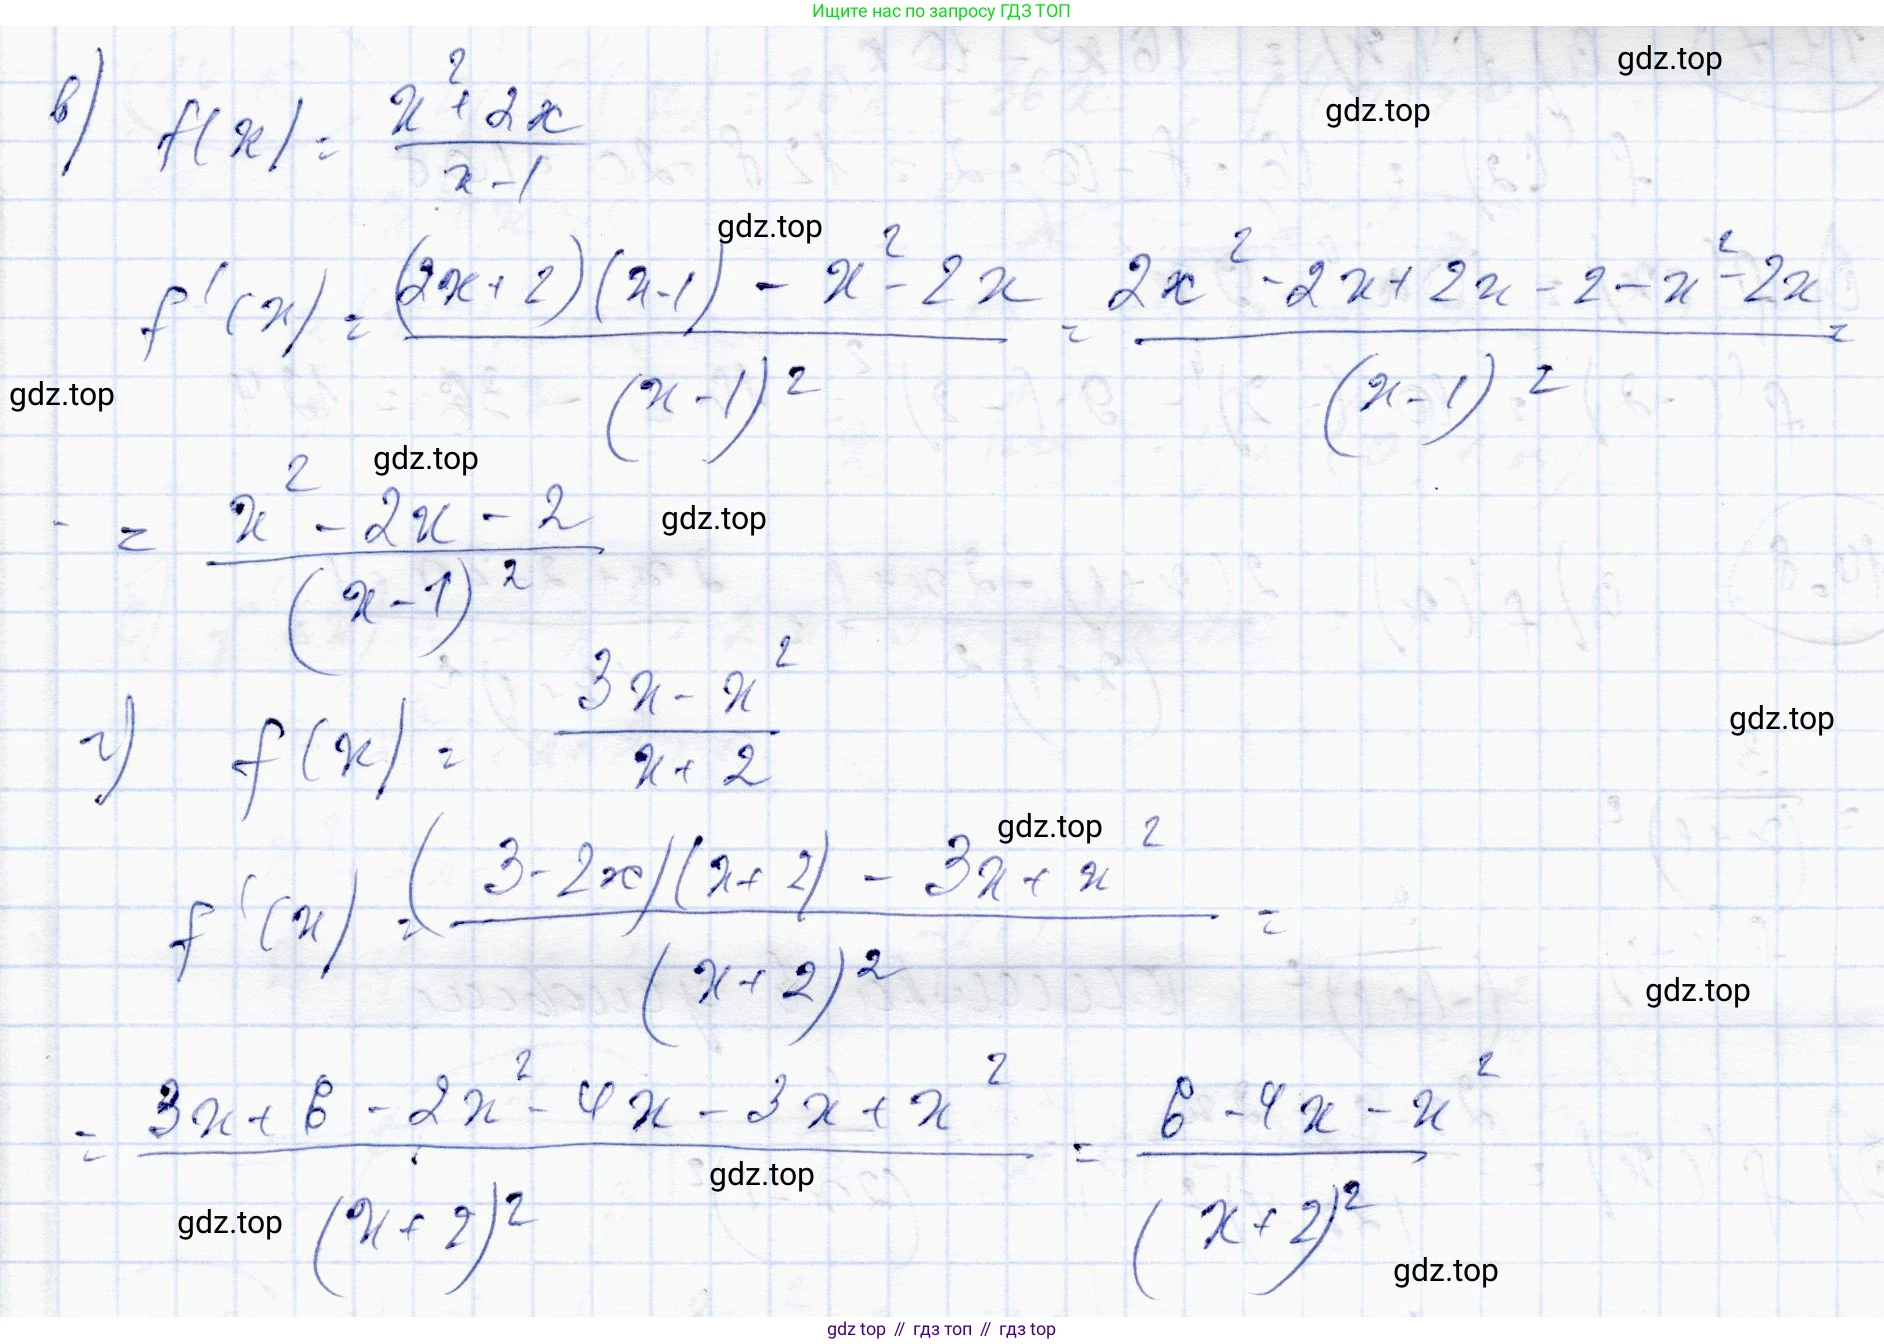 Ищите нас по запросу ГДЗ ТОП
gdz.top
gdz.top
в) f(x) = (x² + 2x)/(x - 1)
gdz.top
f'(x) = ((2x + 2)(x - 1) - x² - 2x)/(x - 1)² = (2x² - 2x + 2x - 2 - x² - 2x)/(x - 1)² =
gdz.top
gdz.top
gdz.top
= (x² - 2x - 2)/(x - 1)²
г) f(x) = (3x - x²)/(x + 2)
gdz.top
gdz.top
f'(x) = ((3 - 2x)(x + 2) - 3x + x²)/(x + 2)² =
gdz.top
= (3x + 6 - 2x² - 4x - 3x + x²)/(x + 2)² = (6 - 4x - x²)/(x + 2)²
gdz.top
gdz.top
gdz.top
gdz top // гдз топ // гдз top